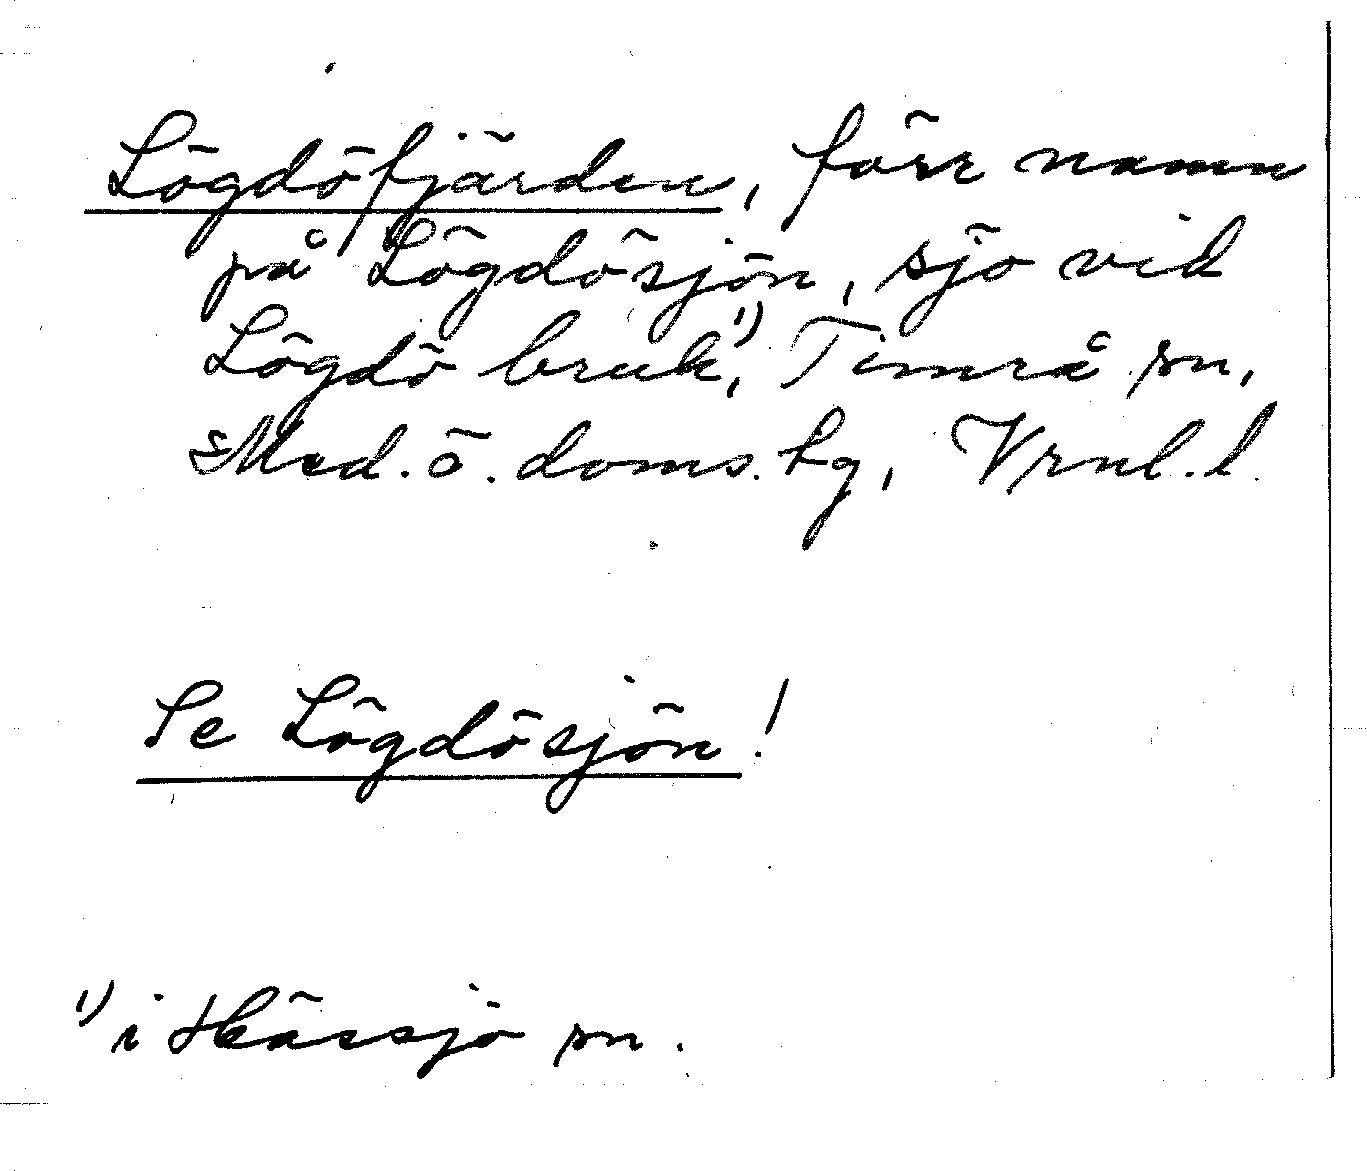 Lögdöfjärden, förr namn
på Lögdösjön, sjö vid
Lögdö bruk,¹⁾ Timrå sn,
Med. ö. doms. hg, Vrnl. l.
Se Lögdösjön!
¹⁾ i Hässjö sn.